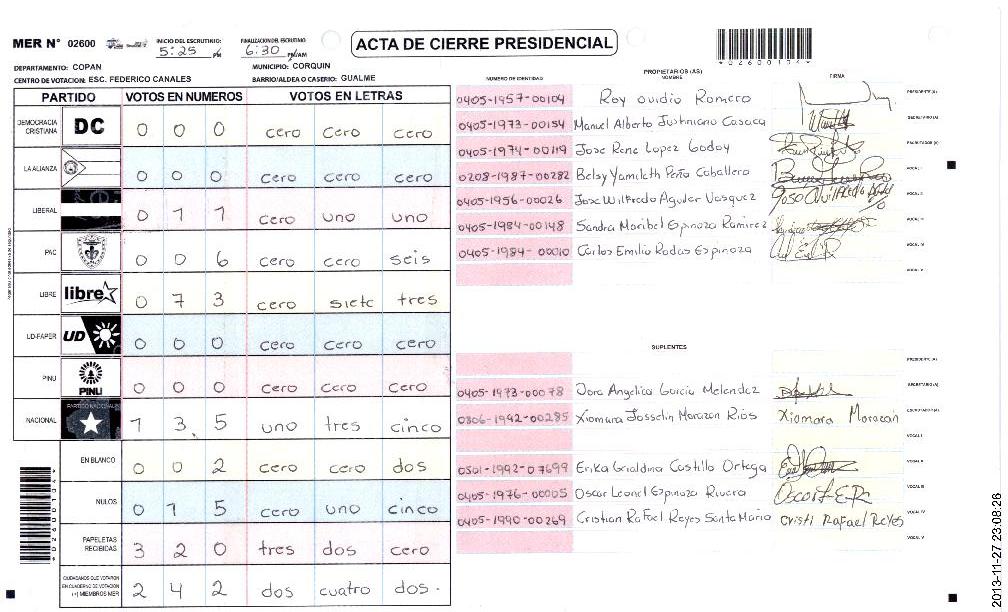 MER N° 02600
INICIO DEL ESCRUTINIO: 5:25 PM
FINALIZACION DEL ESCRUTINIO: 6:30 PM/AM
ACTA DE CIERRE PRESIDENCIAL
*02600134*
DEPARTAMENTO: COPAN
MUNICIPIO: CORQUIN
CENTRO DE VOTACION: ESC. FEDERICO CANALES
BARRIO/ALDEA O CASERIO: GUALME
PARTIDO VOTOS EN NUMEROS VOTOS EN LETRAS
DEMOCRACIA CRISTIANA DC 0 0 0 cero cero cero
LA ALIANZA 0 0 0 cero cero cero
LIBERAL 0 1 1 cero uno uno
PAC 0 0 6 cero cero seis
LIBRE libre 0 7 3 cero siete tres
UD-FAPER UD 0 0 0 cero cero cero
PINU PINU 0 0 0 cero cero cero
NACIONAL PARTIDO NACIONAL 1 3 5 uno tres cinco
EN BLANCO 0 0 2 cero cero dos
NULOS 0 1 5 cero uno cinco
PAPELETAS RECIBIDAS 3 2 0 tres dos cero
CIUDADANOS QUE VOTARON EN CUADERNO DE VOTACION (+) MIEMBROS MER 2 4 2 dos cuatro dos.
NÚMERO DE IDENTIDAD PROPIETARIOS (AS) NOMBRE FIRMA
0405-1957-00104 Roy Ovidio Romero PRESIDENTE(A)
0405-1973-00154 Manuel Alberto Justiniano Casaca SECRETARIO(A)
0405-1974-00119 Jose Rene Lopez Godoy ESCRUTADOR(A)
0208-1987-00282 Belsy Yamileth Peña Caballero VOCAL I
0405-1956-00026 Jose Wilfredo Aguilar Vasquez VOCAL II
0405-1984-00148 Sandra Maribel Espinoza Ramirez VOCAL III
0405-1984-00010 Carlos Emilio Rodas Espinoza VOCAL IV
VOCAL V
SUPLENTES
PRESIDENTE(A)
0405-1973-00078 Dora Angelica Garcia Melendez SECRETARIO(A)
0306-1942-00285 Xiomara Josselin Morazan Rios Xiomara Morazan ESCRUTADOR(A)
VOCAL I
0301-1992-07699 Erika Grialdina Castillo Ortega VOCAL II
0405-1976-00005 Oscar Leonel Espinoza Rivera VOCAL III
0405-1990-00269 Cristian Rafael Reyes Santa Maria Cristi Rafael Reyes VOCAL IV
VOCAL V
2013-11-27 23:08:26